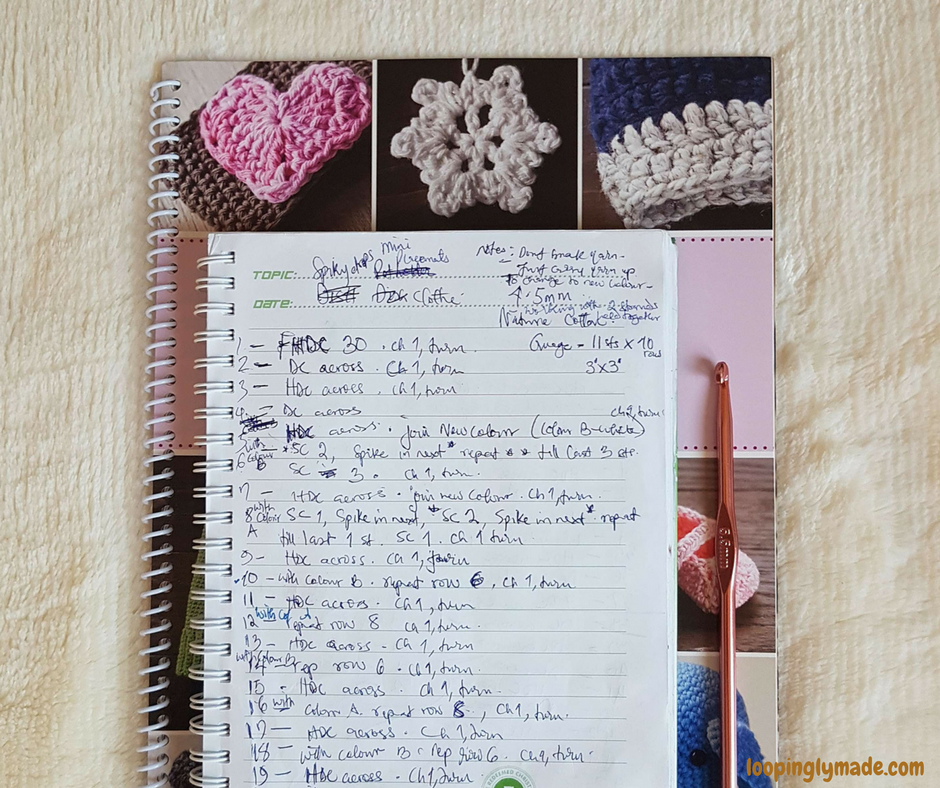 TOPIC: Spikydrops mini
placemats
DATE: clothe
Notes:- Dont break yarn.
Just carry yarn up
to change to new colour.
4.5mm
working with 2 strands
held together
Nature Cotton.
1 - FHDC 30 . ch 1, turn.
Guage = 11sts x 10
rows
2 - DC across . Ch 1, turn
3" x 3"
3 - HDC across . ch 1, turn
4 - DC across
ch 1, turn.
5 HDC across . Join New Colour (Colour B-white)
6 with Colour B *SC 2, Spike in next* repeat * * till last 3 sts.
SC 3 . ch 1, turn.
7 - HDC across . join new colour . Ch 1, turn.
8 with Colour A SC 1, Spike in next, *SC 2, Spike in next* repeat
till last 1 st. SC 1 . ch 1 turn.
9 - HDC across. Ch 1, turn
10 - with colour B . repeat row 6, ch 1, turn
11 - HDC across . Ch 1, turn
12 with Col A repeat row 8 ch 1, turn.
13 - HDC across . Ch 1, turn
with colour B
14 - rep row 6 . Ch 1, turn.
15 - HDC across . Ch 1, turn.
16 with colour A. repeat row 8, Ch 1, turn.
17 - HDC across . Ch 1, turn
18 - with colour B . rep row 6. Ch 1, turn.
19 - HDC across . Ch 1, turn
loopinglymade.com